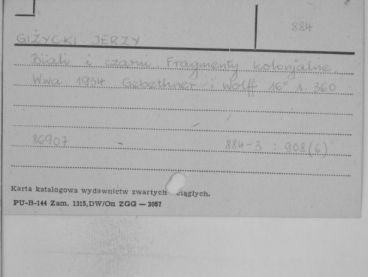 884
GIŻYCKI JERZY
Biali i czarni. Fragmenty kolonjalne.
Wwa 1934 Gebethner i Wolff 16° s. 360
86907 884-3 : 908(6)
Karta katalogowa wydawnictw zwartych ciągłych.
PU-B-144 Zam. 1315,DW/On ZGG — 2057